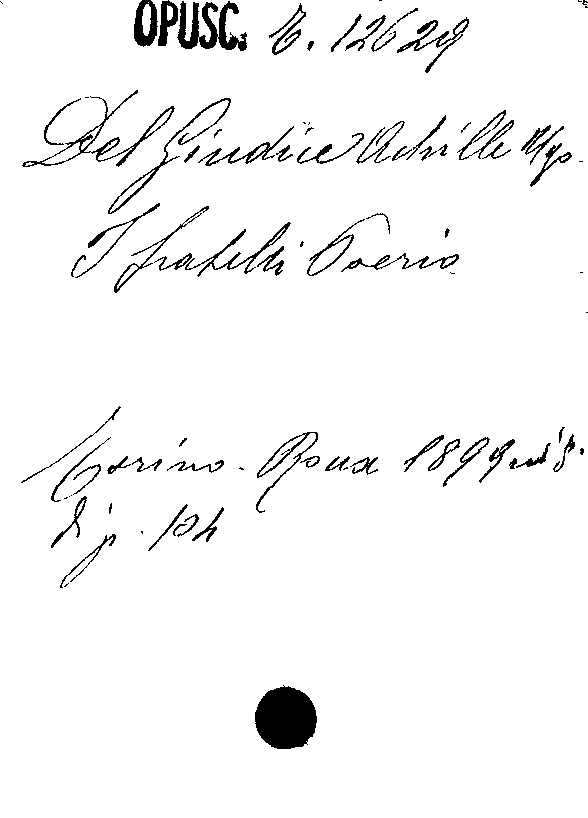 OPUSC. E. 12629
Del Giudice Achille Ugo.
I fratelli Poerio
Torino. Roux 1899 in 8.
di p. 104